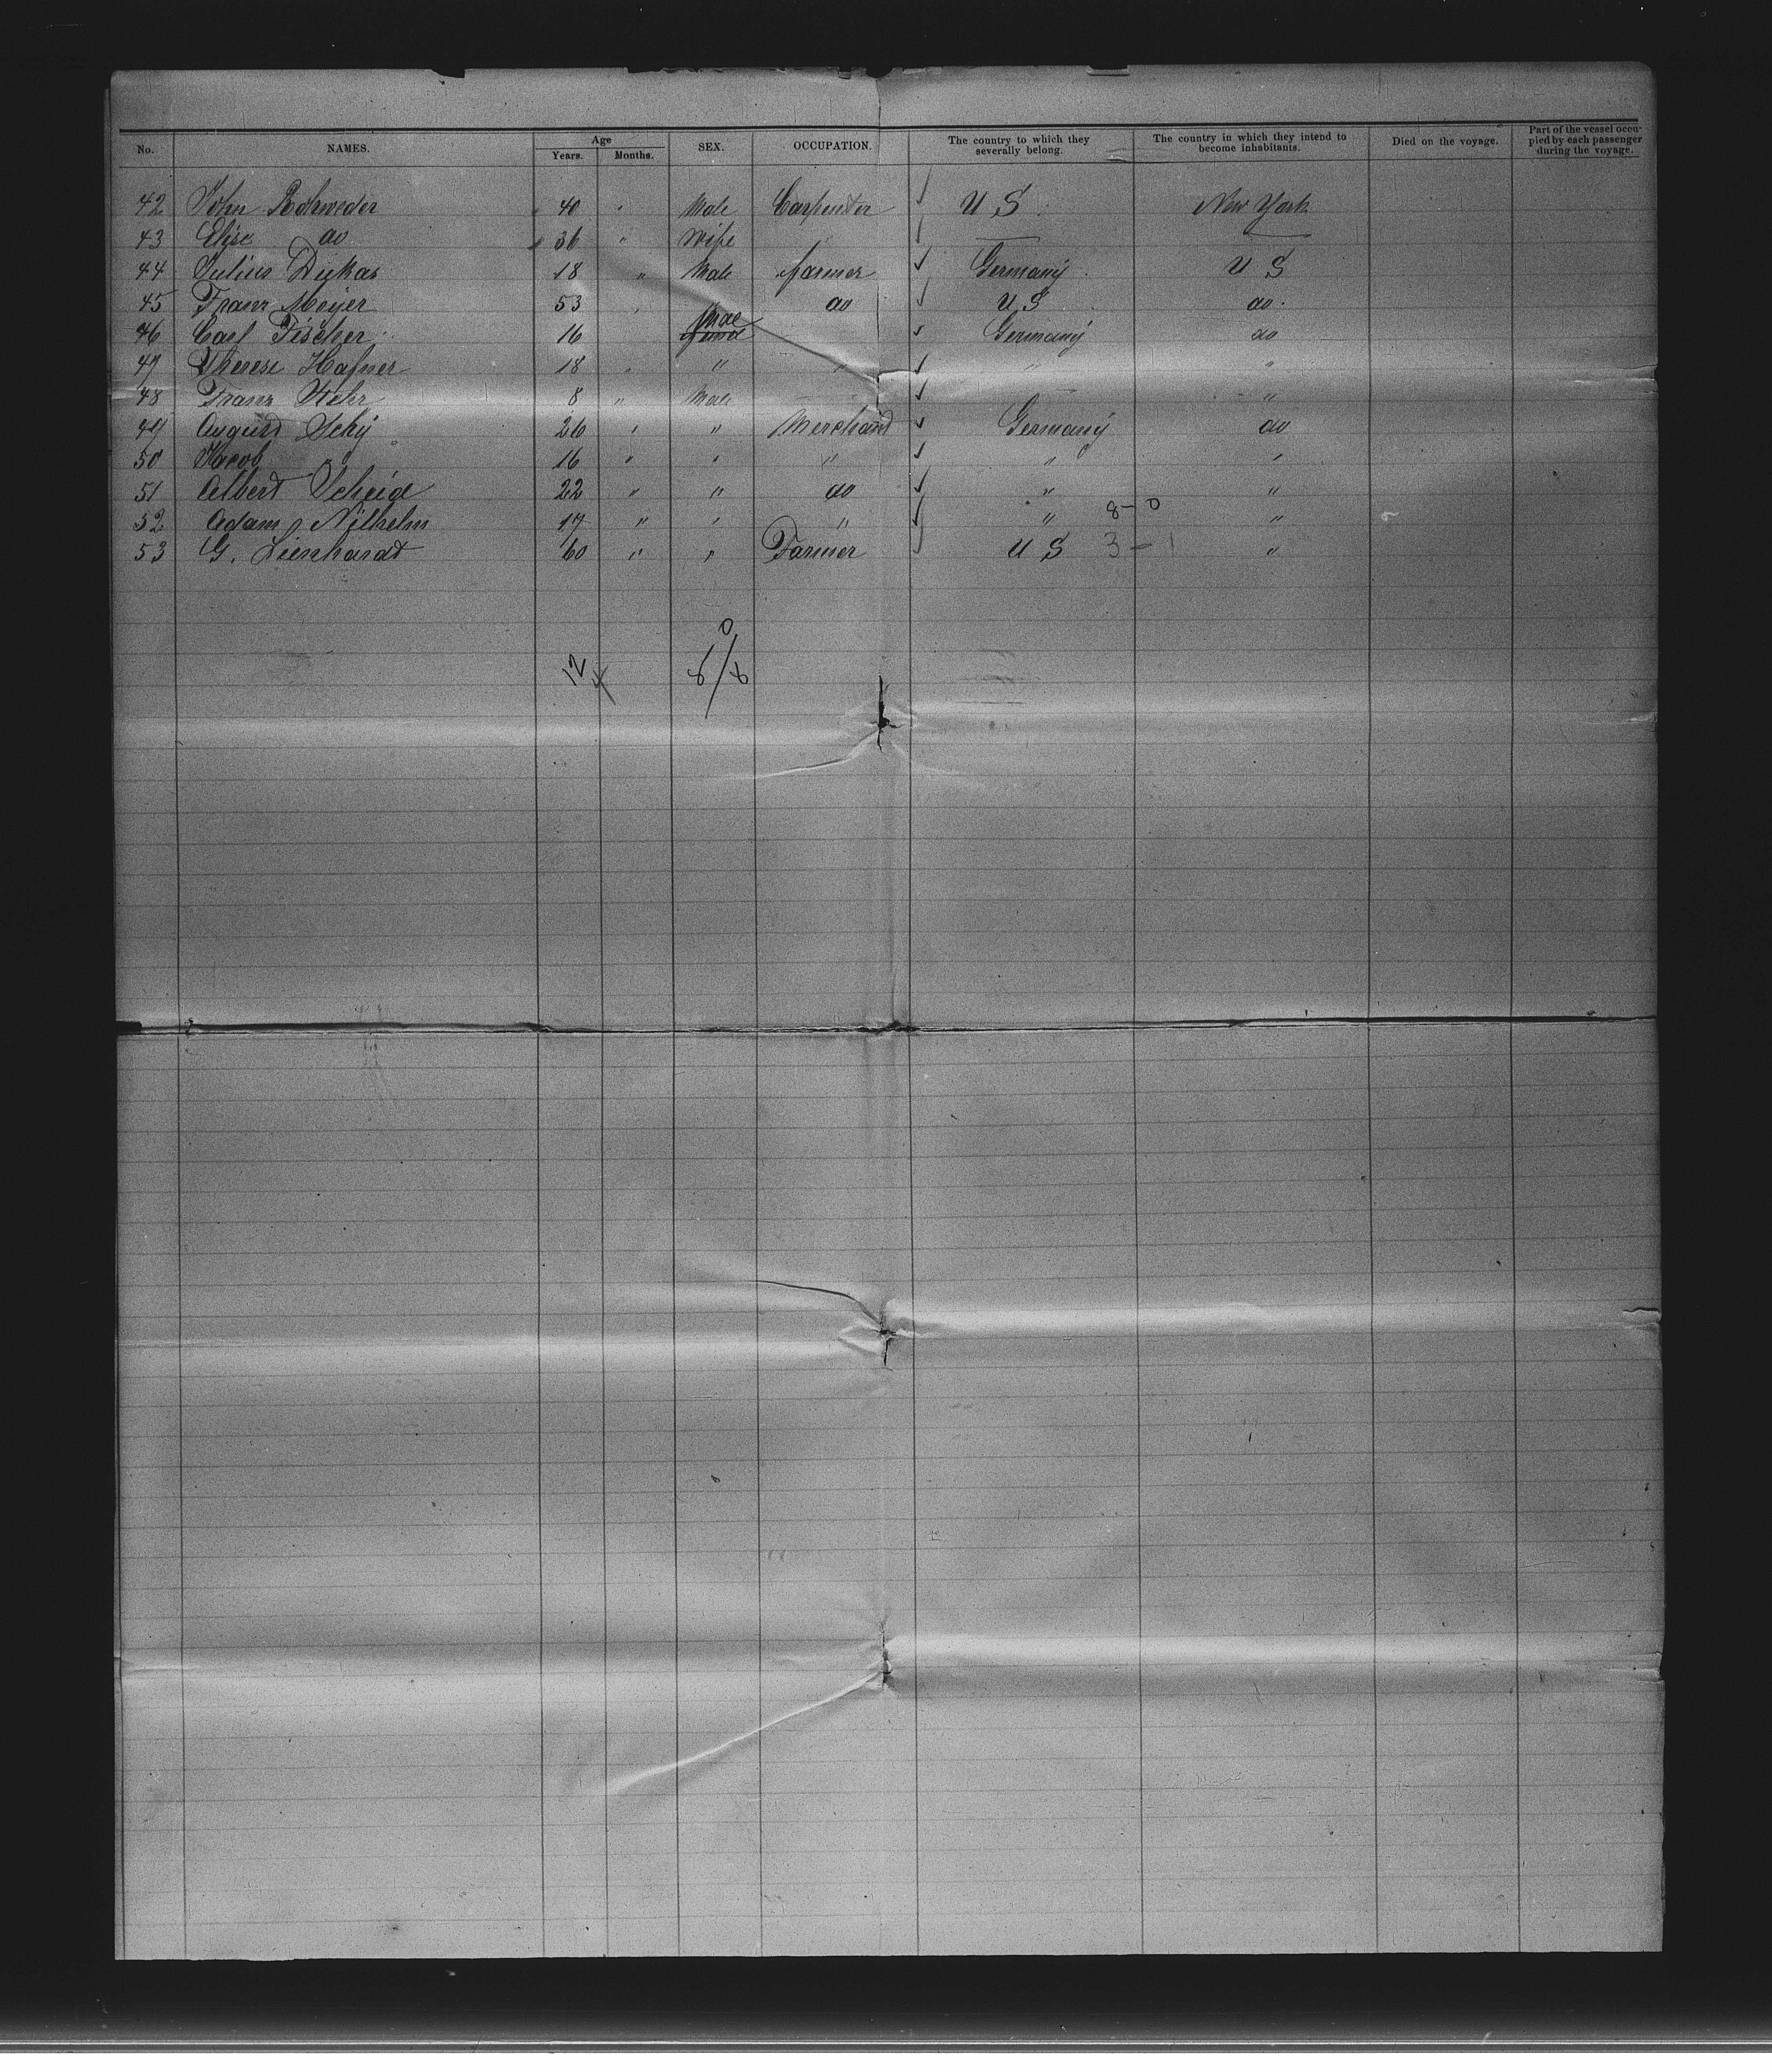 No. NAMES. Age Years. Months. SEX. OCCUPATION. The country to which they severally belong. The country in which they intend to become inhabitants. Died on the voyage. Part of the vessel occupied by each passenger during the voyage.
42 John Rohweder 40 " Male Carpenter U S New York
43 Elise do 36 " Wife
44 Julius Dukas 18 " Male farmer Germany U S
45 Franz Meyer 53 " " do U S do
46 Carl Fischer 16 Male Germany do
47 Therese Hafner 18 " " " " "
48 Franz 8 " Male "
49 August Schy 26 " " Merchand Germany do
50 Jacob " 16 " " " " "
51 Albert Scheide 22 " " do " "
52 Adam Wilhelm 17 " " " " 8-0 "
53 G. Lienhardt 60 " " Farmer U S 3-1 "
0
12 8/8